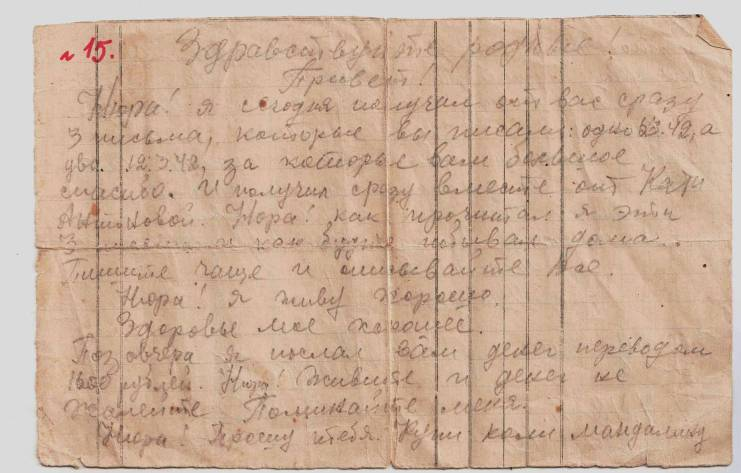 15.
Здравствуйте родные!
Привет!
Нюра! я сегодня получил от вас сразу
3 письма, которые вы писали: одно 42, а
два 12.3.42, за которые вам большое
спасибо. И получил сразу вместе от Кати
Антоновой. Нюра! как прочитал я эти
3 письма и как будто побывал дома.
Пишите чаще и описывайте все.
Нюра! я живу хорошо.
Здоровье мое хорошее.
Позовчера я послал вам денег переводом
рублей. Нюра! Живите и денег не
жалейте Поминайте меня.
Нюра! Прошу тебя. Купи коли мандалину